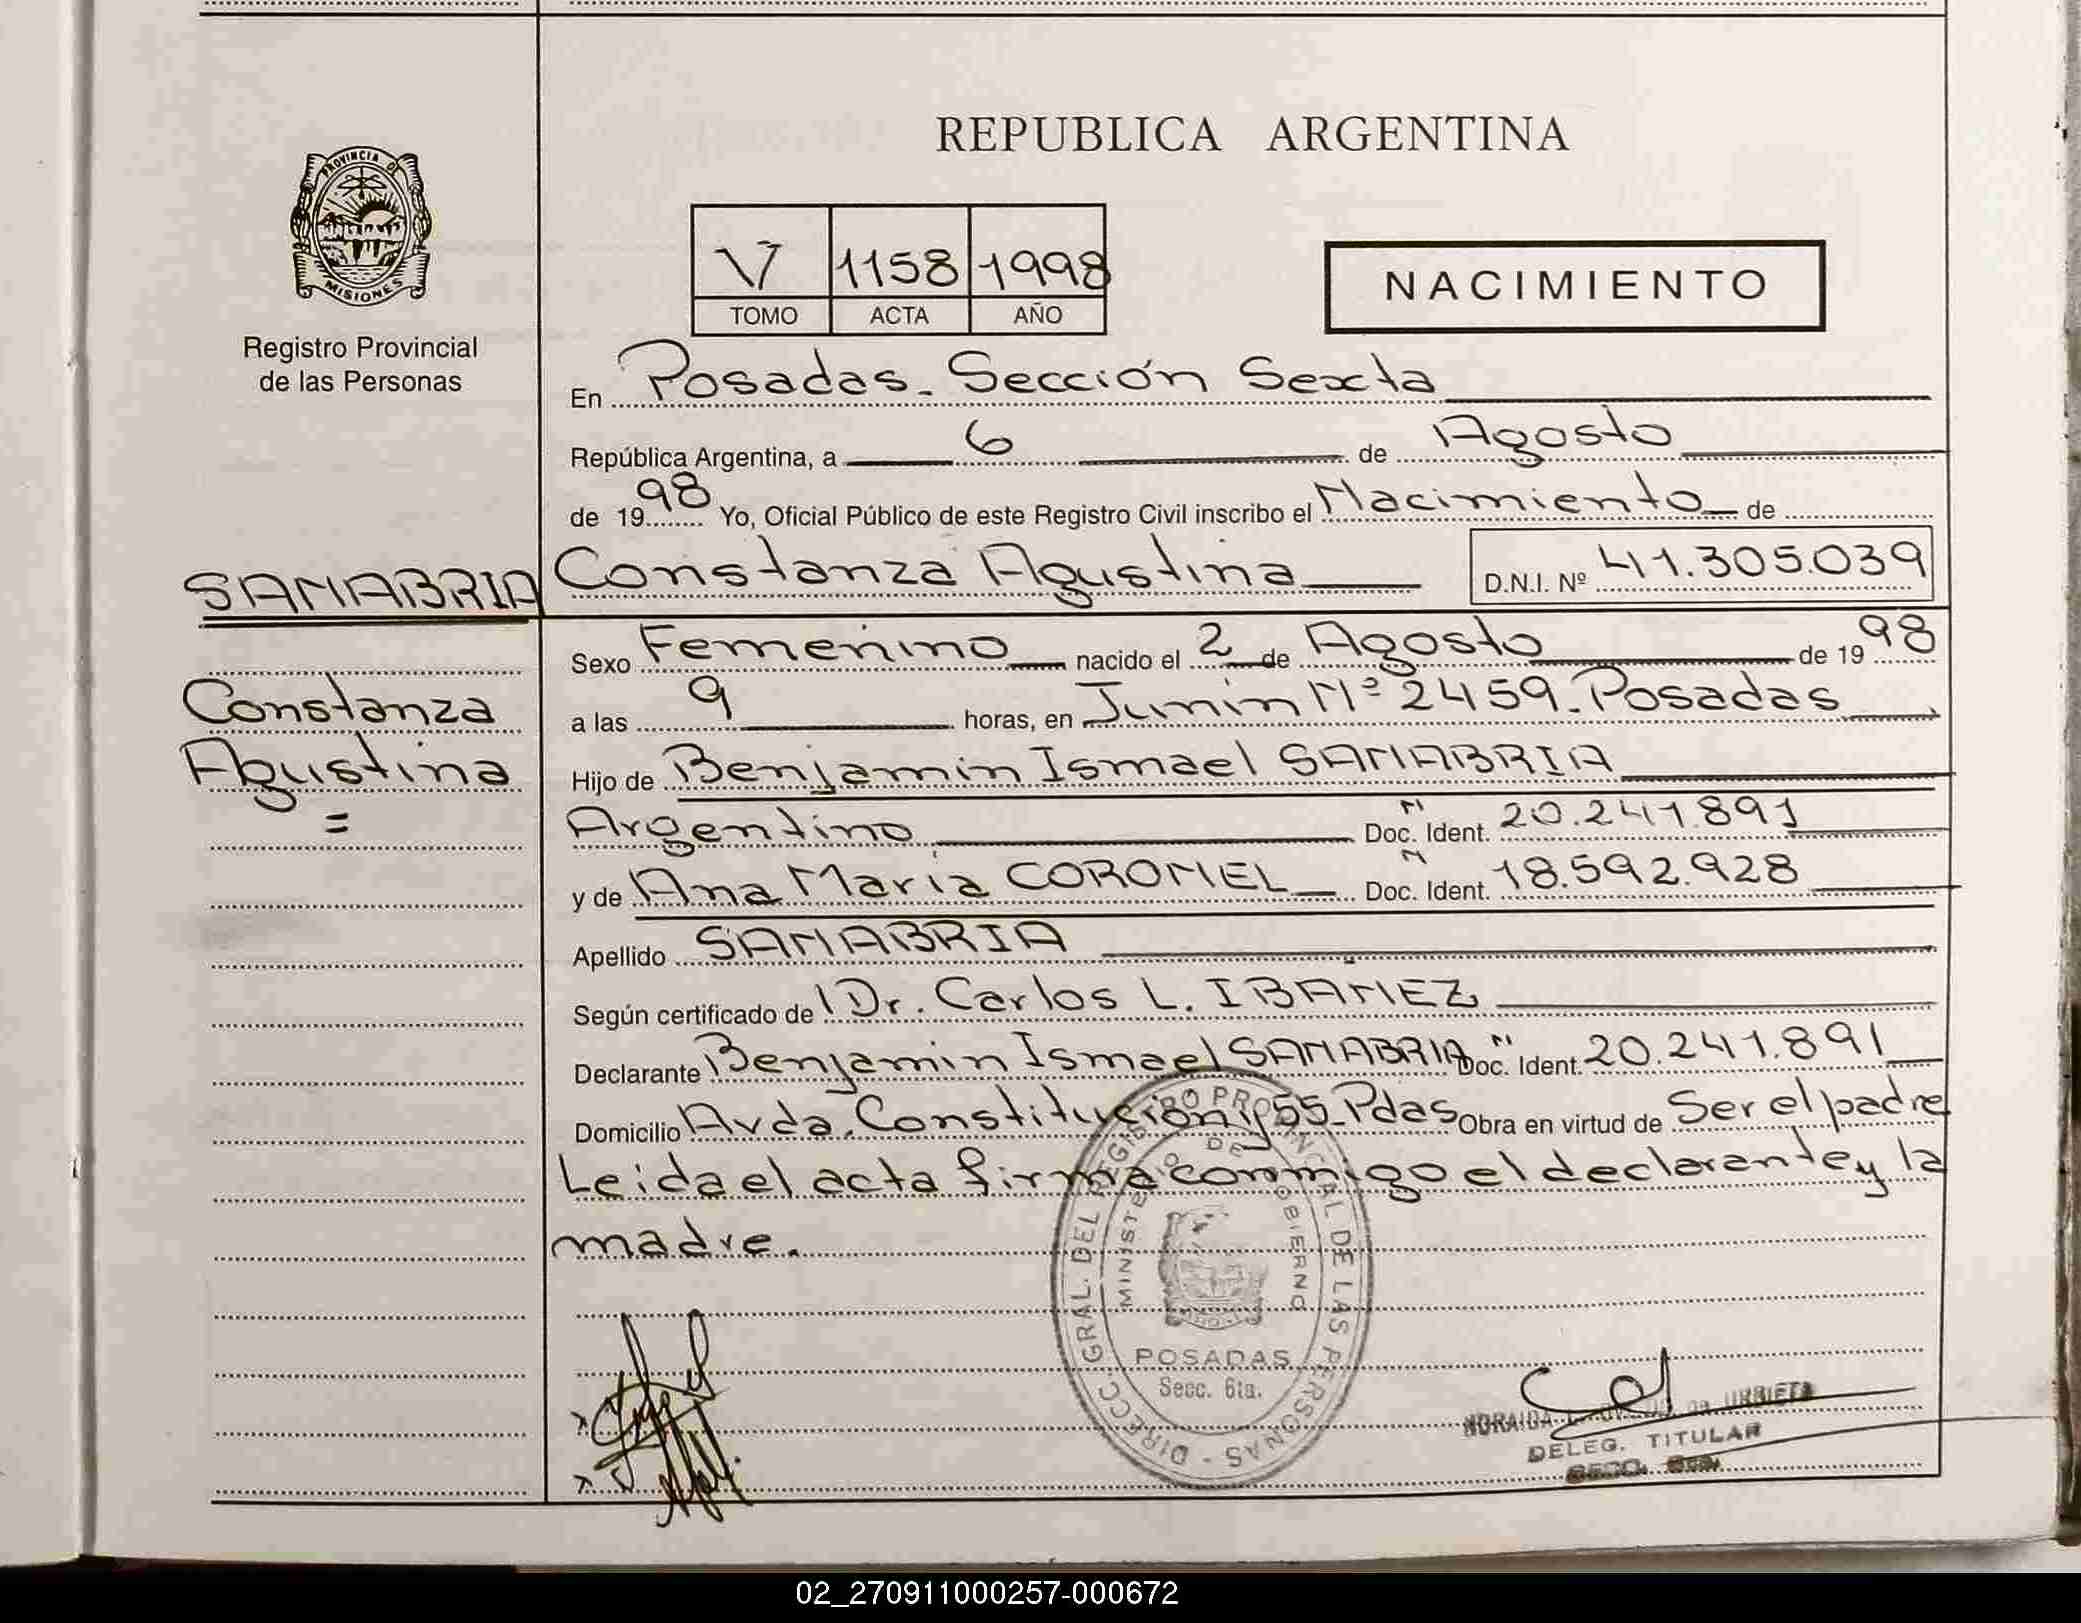 REPUBLICA ARGENTINA
PROVINCIA DE
MISIONES
Registro Provincial
de las Personas
V 1158 1998
TOMO ACTA AÑO
NACIMIENTO
En Posadas. Sección Sexta
República Argentina, a 6 de Agosto
de 1998 Yo, Oficial Público de este Registro Civil inscribo el Nacimiento de
SANABRIA Constanza Agustina D.N.I. Nº 41.305.039
Sexo Femenino nacido el 2 de Agosto de 1998
Constanza
a las 9 horas, en Junin Nº 2459. Posadas
Agustina
=
Hijo de Benjamin Ismael SANABRIA
Argentino Doc. Ident. N 20.241.891
y de Ana María CORONEL Doc. Ident. N 18.592.928
Apellido SANABRIA
Según certificado de Dr. Carlos L. IBAÑEZ
Declarante Benjamin Ismael SANABRIA Doc. Ident. N 20.241.891
Domicilio Avda. Constitución y 55. Pdas Obra en virtud de Ser el padre
Leida el acta firma conmigo el declarante y la
madre.
DIRECC. GRAL. DEL REGISTRO PROVINCIAL DE LAS PERSONAS -
MINISTERIO DE GOBIERNO
POSADAS
Secc. 6ta.
NORAIDA URBIETA
DELEG. TITULAR
SECC. 6ta.
02_270911000257-000672